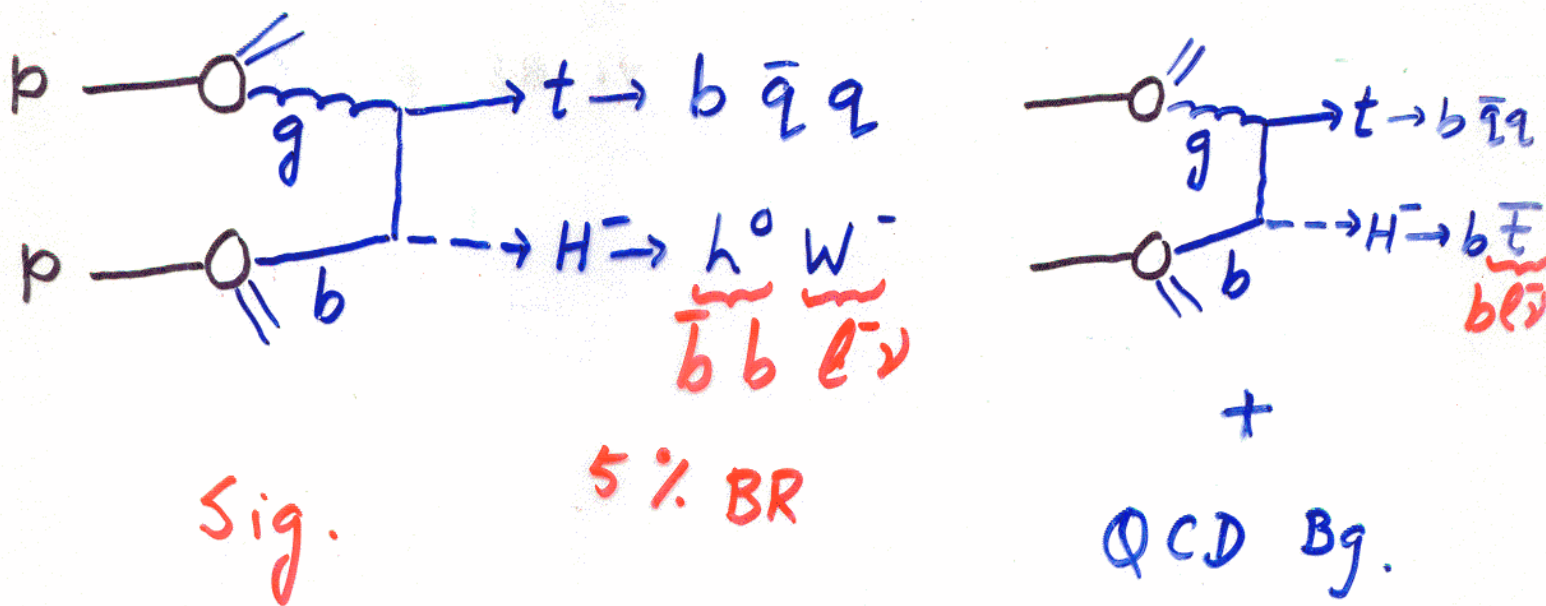 p g t → b q̄ q
p b H⁻ → h⁰ W⁻
b̄ b l⁻ν
5 % BR
Sig.
g t → b q̄ q
b H⁻ → b t̄
b l ν̄
+
QCD Bg.